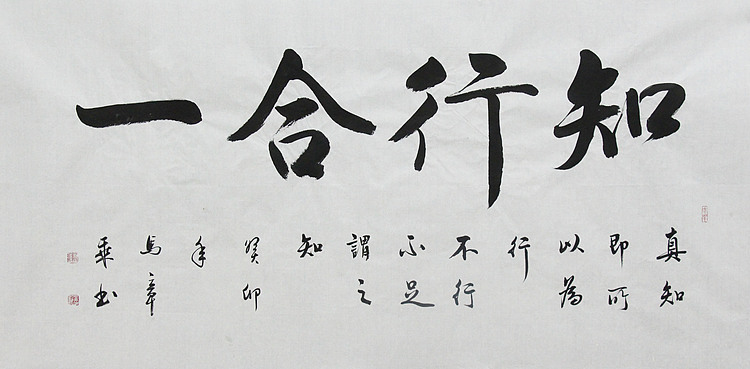 知行合一
真知
即所
以為
行
不行
不足
謂之
知
癸卯
年
馬章
乘書